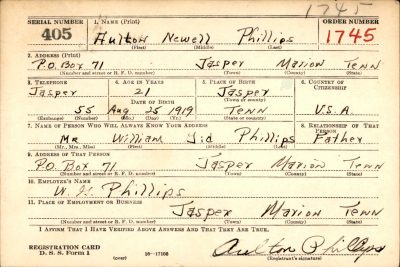 1745
SERIAL NUMBER 1. NAME (Print) ORDER NUMBER
405 Aulton Newell Phillips 1745
(First) (Middle) (Last)
2. ADDRESS (Print)
P.O. Box 71 Jasper Marion Tenn
(Number and street or R. F. D. number) (Town) (County) (State)
3. TELEPHONE 4. AGE IN YEARS 5. PLACE OF BIRTH 6. COUNTRY OF CITIZENSHIP
Jasper 21 Jasper
DATE OF BIRTH (Town or county)
55 Aug 25 1919 Tenn U.S.A.
(Exchange) (Number) (Mo.) (Day) (Yr.) (State or country)
7. NAME OF PERSON WHO WILL ALWAYS KNOW YOUR ADDRESS 8. RELATIONSHIP OF THAT PERSON
Mr William Sid Phillips Father
(Mr., Mrs., Miss) (First) (Middle) (Last)
9. ADDRESS OF THAT PERSON
P.O. Box 71 Jasper Marion Tenn
(Number and street or R. F. D. number) (Town) (County) (State)
10. EMPLOYER'S NAME
W. Phillips
11. PLACE OF EMPLOYMENT OR BUSINESS
Jasper Marion Tenn
(Number and street or R. F. D. number) (Town) (County) (State)
I AFFIRM THAT I HAVE VERIFIED ABOVE ANSWERS AND THAT THEY ARE TRUE.
REGISTRATION CARD
D. S. S. Form 1 (over) 16—17105 Aulton Phillips
(Registrant's signature)